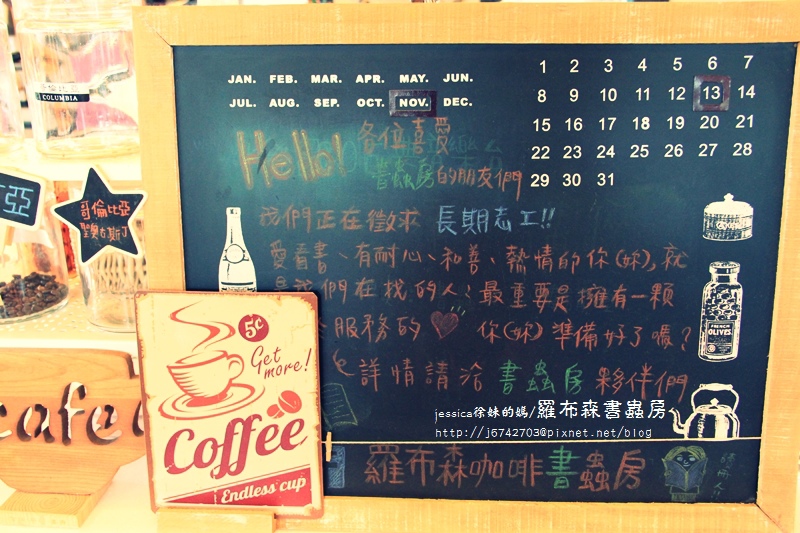 COLUMBIA
亞
哥倫比亞
聖奧古斯丁
JAN. FEB. MAR. APR. MAY. JUN.
JUL. AUG. SEP. OCT. NOV. DEC.
1 2 3 4 5 6 7
8 9 10 11 12 13 14
15 16 17 18 19 20 21
22 23 24 25 26 27 28
29 30 31
Hello! 各位喜愛
書蟲房的朋友們
我們正在徵求 長期志工!!
愛看書、有耐心、和善、熱情的你(妳),就
是我們在找的人!最重要是擁有一顆
服務的 你(妳)準備好了嗎?
詳情請洽 書蟲房 夥伴們
FRENCH
OLIVES
5¢
Get
more!
Coffee
Endless cup
cafe
jessica徐妹的媽/羅布森書蟲房
http://j6742703@pixnet.net/blog
羅布森咖啡書蟲房